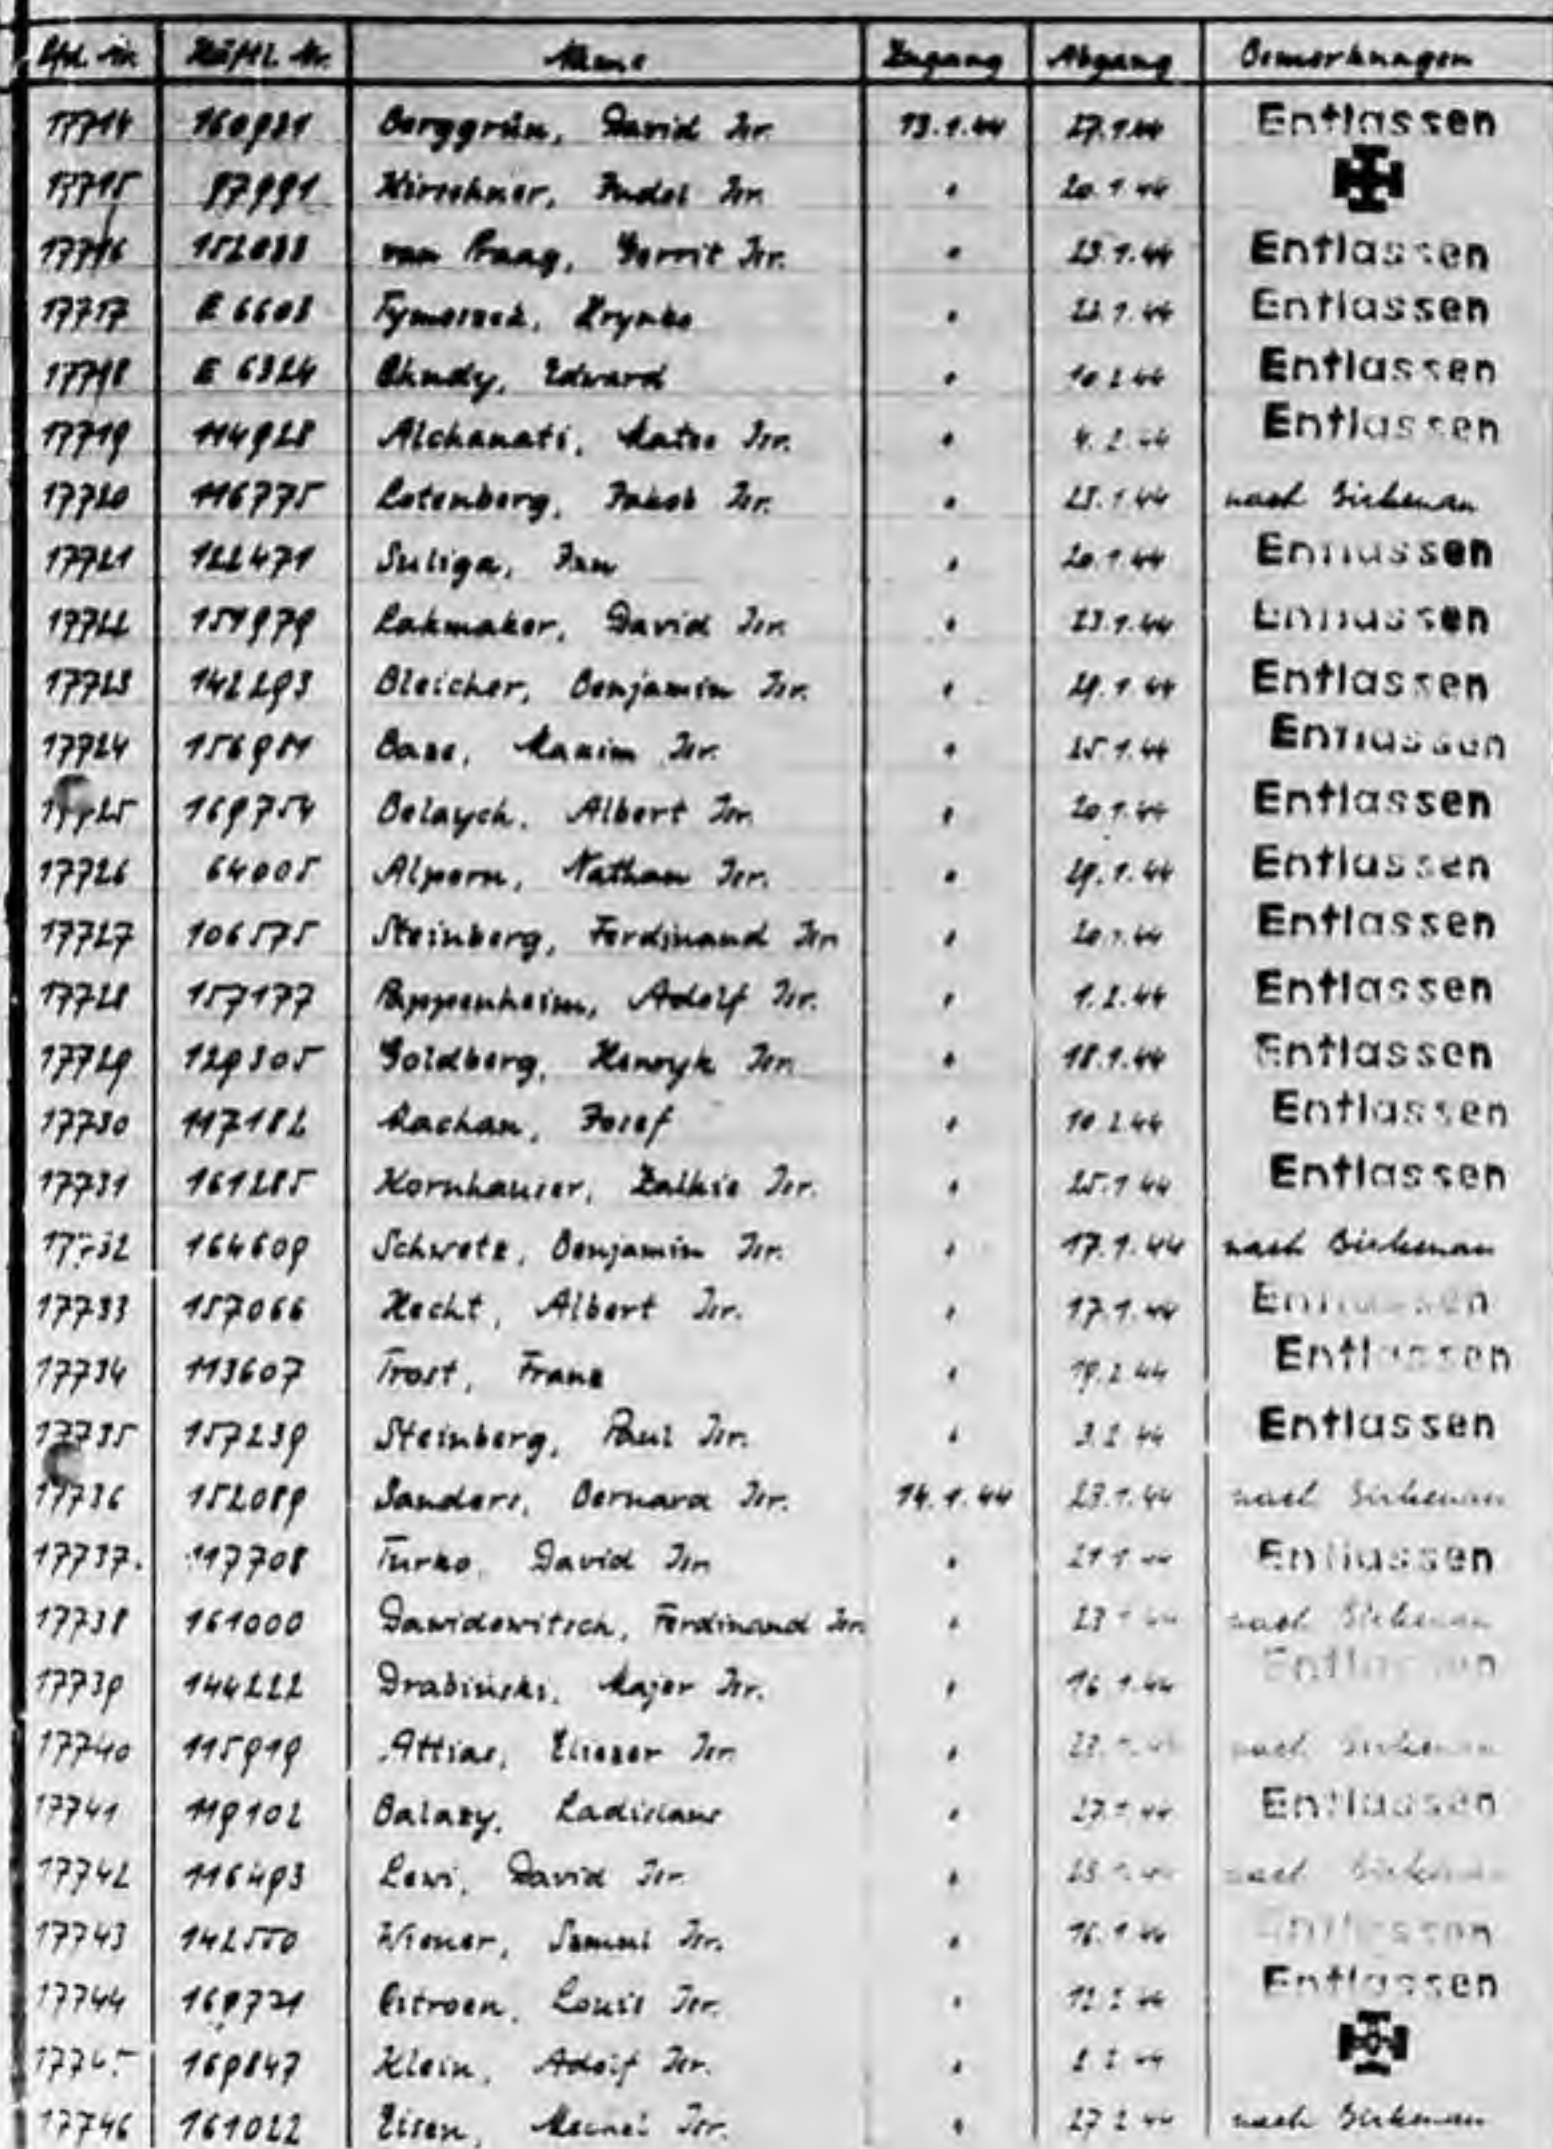 Lfd. Nr. Häftl. Nr. Name Zugang Abgang Bemerkungen
17714 160921 Berggrün, David Isr. 13.1.44 27.1.44 Entlassen
17715 Kirschner, Judel Isr. " 20.1.44
17716 152033 van Praag, Gerrit Isr. " 23.1.44 Entlassen
17717 E 6603 Tymoszuk, Hrynko " Entlassen
17718 E 6324 Chudy, Edward " 10.2.44 Entlassen
17719 114928 Alchanati, Isr. " 4.2.44 Entlassen
17720 116775 Lotenberg, Jakob Isr. " 23.1.44 nach Birkenau
17721 122471 Suliga, Jan " 20.1.44 Entlassen
17722 151979 Lakmaker, David Isr. " 23.1.44 Entlassen
17723 142293 Bleicher, Benjamin Isr. " 29.1.44 Entlassen
17724 156981 Maxim Isr. " 25.1.44 Entlassen
17725 169754 Belaych, Albert Isr. " 20.1.44 Entlassen
17726 64005 Alpern, Nathan Isr. " 29.1.44 Entlassen
17727 106575 Steinberg, Ferdinand Isr. " 20.1.44 Entlassen
17728 157177 Pappenheim, Adolf Isr. " 1.2.44 Entlassen
17729 129305 Goldberg, Henryk Isr. " 18.1.44 Entlassen
17730 117182 Machan, Josef " 10.2.44 Entlassen
17731 161285 Kornhauser, Isr. " 25.1.44 Entlassen
17732 164609 Schwetz, Benjamin Isr. " 17.1.44 nach Birkenau
17733 157066 Hecht, Albert Isr. " 17.1.44 Entlassen
17734 113607 Trost, Franz " 19.2.44 Entlassen
17735 157239 Steinberg, Paul Isr. " 3.2.44 Entlassen
17736 152089 Sanders, Bernard Isr. 14.1.44 23.1.44 nach Birkenau
17737. 117708 Turko, David Isr. " 21.1.44 Entlassen
17738 161000 Dawidowitsch, Ferdinand Isr. " 23.1.44 nach Birkenau
17739 144222 Drabinski, Majer Isr. " 16.1.44 Entlassen
17740 115919 Attias, Eliezer Isr. " 23.1.44 nach Birkenau
17741 119102 Balazy, Ladislaus " 27.1.44 Entlassen
17742 116493 Lewi, David Isr. " 23.1.44 nach Birkenau
17743 142550 Wiener, Samuel Isr. " 16.1.44 Entlassen
17744 Citroen, Louis Isr. " 12.2.44 Entlassen
17745 169847 Klein, Adolf Isr. "
17746 161022 Eisen, Isr. " 27.2.44 nach Birkenau